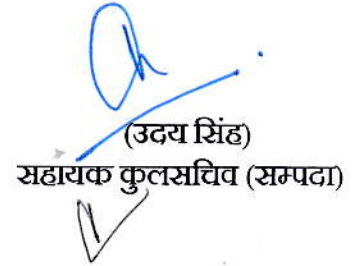 (उदय सिंह)
सहायक कुलसचिव (सम्पदा)